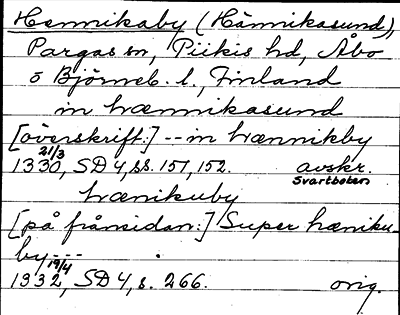 Hennikaby (Hännikasund),
Pargas sn, Piikis hd, Åbo
o Björneb. l., Finland
in hænnikasund
[överskrift:] -- in hænnikby
21/3
1330, SD 4, ss. 151, 152. avskr.
Svartboken
hænikuby
[på frånsidan:] Super hæniku-
by---
19/4
1332, SD 4, s. 266. orig.